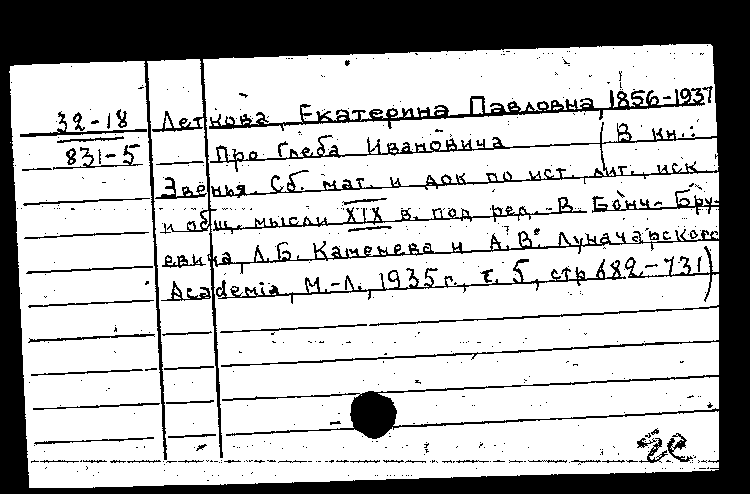 32-18 Леткова, Екатерина Павловна, 1856-1937
831-5 Про Глеба Ивановича (В кн.:
Звенья. Сб. мат. и док по ист. лит., иск
и общ. мысли XIX в. под ред. В. Бонч-Бру-
евича, Л.Б. Каменева и А.В. Луначарского
Academia, М.-Л., 1935 г., т. 5, стр 682-731)